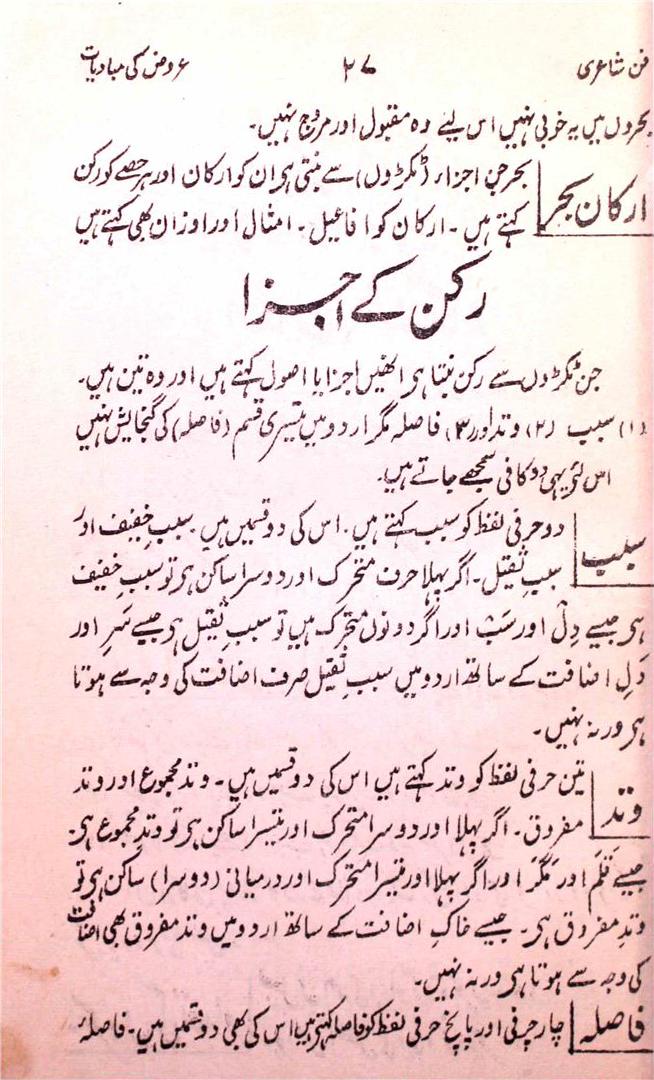 فن شاعری ۲۷ عروض کی مبادیات
بحروں میں یہ خوبی نہیں اس لیے وہ مقبول اور مروج نہیں۔
ارکان بحر
بحر جن اجزاء (ٹکڑوں) سے بنتی ہی ان کو ارکان اور ہر حصے کو رکن
کہتے ہیں۔ ارکان کو افاعیل۔ امثال اور اوزان بھی کہتے ہیں
رکن کے اجزا
جن ٹکڑوں سے رکن بنتا ہی انھیں اجزا یا اصول کہتے ہیں اور وہ تین ہیں۔
(۱) سبب (۲) وتد اور (۳) فاصلہ مگر اردو میں تیسری قسم (فاصلہ) کی گنجایش نہیں
اس لئے یہی دو کافی سمجھے جاتے ہیں۔
سبب
دو حرفی لفظ کو سبب کہتے ہیں۔ اس کی دو قسمیں ہیں۔ سببِ خفیف اور
سببِ ثقیل۔ اگر پہلا حرف متحرک اور دوسرا ساکن ہی تو سببِ خفیف
ہی جیسے دِلْ اور سَبْ اور اگر دونوں متحرک ہیں تو سببِ ثقیل ہی جیسے سَرِ اور
دَلِ اضافت کے ساتھ اردو میں سببِ ثقیل صرف اضافت کی وجہ سے ہوتا
ہی ورنہ نہیں۔
وتد
تین حرفی لفظ کو وتد کہتے ہیں اس کی دو قسمیں ہیں۔ وتد مجموع اور وتد
مفروق۔ اگر پہلا اور دوسرا متحرک اور تیسرا ساکن ہی تو وتدِ مجموع ہی۔
جیسے قَلَم اور مَگَر اور اگر پہلا اور تیسرا متحرک اور درمیانی (دوسرا) ساکن ہی تو
وتدِ مفروق ہی۔ جیسے خاکِ اضافت کے ساتھ اردو میں وتد مفروق بھی اضافت
کی وجہ سے ہوتا ہی ورنہ نہیں۔
فاصلہ
چار حرفی اور پانچ حرفی لفظ کو فاصلہ کہتے ہیں اس کی بھی دو قسمیں ہیں۔ فاصلۂ